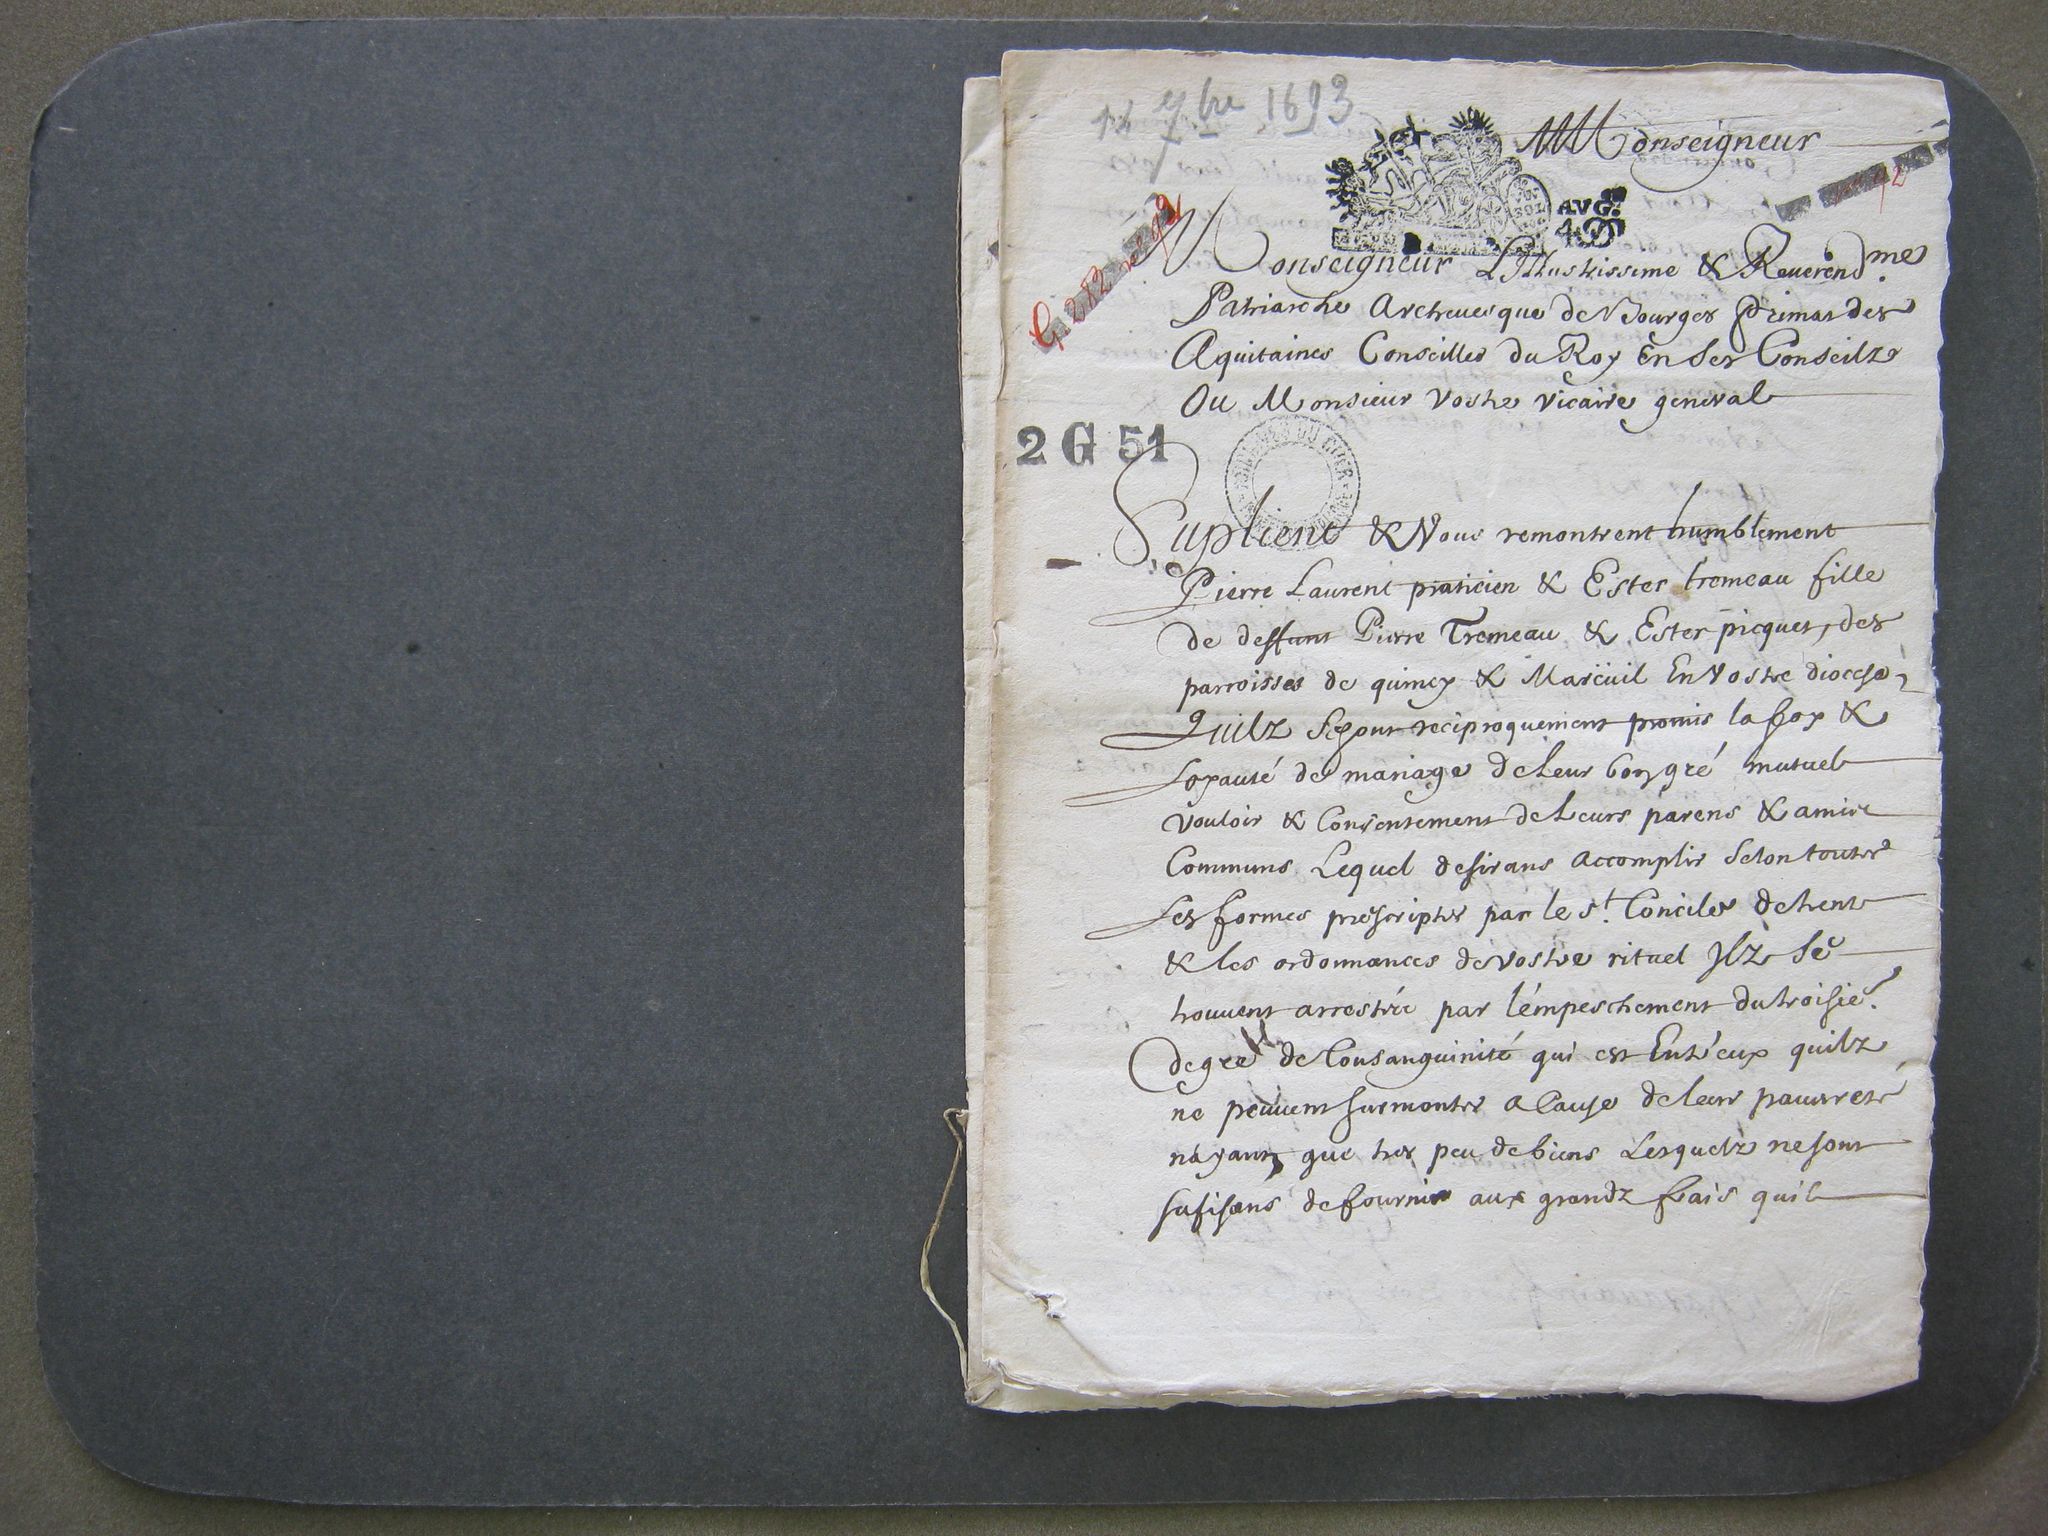 9bre 1693
Monseigneur
AVG.
Monseigneur L'Illustrissime & Reuerendme
Patriarche Archeuesque de Bourges Primat des
Aquitaines Conseiller du Roy En Ses Conseilz
Ou Monsieur Vostre vicaire general
2 G 51
Suplient & Vous remontrent humblement
Pierre Laurent praticien & Ester tremeau fille
de deffunt Pierre Tremeau & Ester picquet, des
parroisses de quincy & Mareüil En Vostre diocese,
Quilz Se sont reciproquement promis la foy &
Loyauté de mariage de Leur bon gré mutuel
vouloir & Consentement de Leurs parens & amis
Communs Lequel desirans accomplir Selon toutes
Les formes prescriptes par le st. Concile de trente
& les ordonnances de vostre rituel Ilz Se
trouuent arrestéz par l'émpeschement du troisié.
degré de Consanguinité qui est Entr'eux quilz
ne peuuent surmonter a Cause de leur pauureté
n'ayant que tres peu de biens Lesquelz ne sont
sufisans de fournir aux grandz frais quil